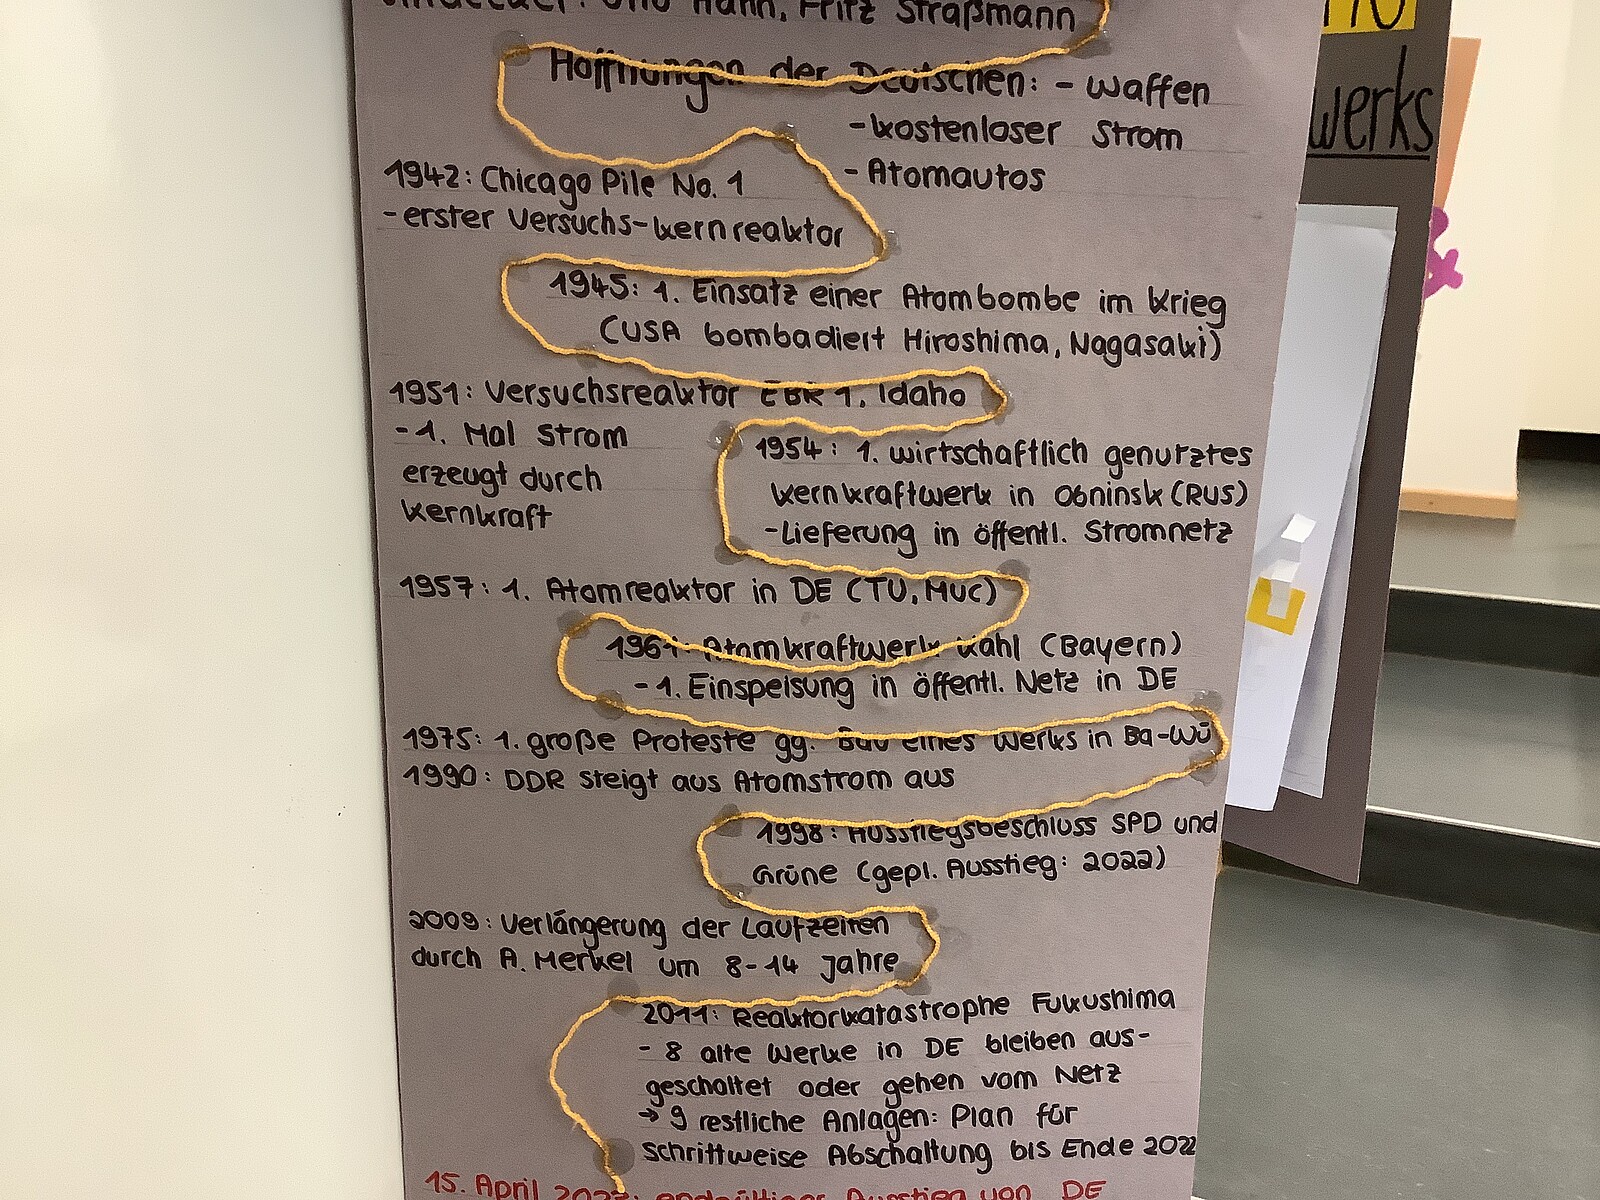 Otto Hahn, Fritz Straßmann
Hoffnungen der Deutschen: - Waffen
- kostenloser Strom
- Atomautos
1942: Chicago Pile No. 1
- erster Versuchs-kernreaktor
1945: 1. Einsatz einer Atombombe im Krieg
(USA bombadiert Hiroshima, Nagasaki)
1951: Versuchsreaktor EBR 1, Idaho
- 1. Mal Strom
erzeugt durch
Kernkraft
1954: 1. wirtschaftlich genutztes
Kernkraftwerk in Obninsk (RUS)
- Lieferung in öffentl. Stromnetz
1957: 1. Atomreaktor in DE (TU, MUC)
1961: Atomkraftwerk Kahl (Bayern)
- 1. Einspeisung in öffentl. Netz in DE
1975: 1. große Proteste gg. Bau eines Werks in Ba-Wü
1990: DDR steigt aus Atomstrom aus
1998: Ausstiegsbeschluss SPD und
Grüne (gepl. Ausstieg: 2022)
2009: Verlängerung der Laufzeiten
durch A. Merkel um 8-14 Jahre
2011: Reaktorkatastrophe Fukushima
- 8 alte Werke in DE bleiben aus-
geschaltet oder gehen vom Netz
→ 9 restliche Anlagen: Plan für
schrittweise Abschaltung bis Ende 2022
15. April endgültiger Ausstieg von DE
werks